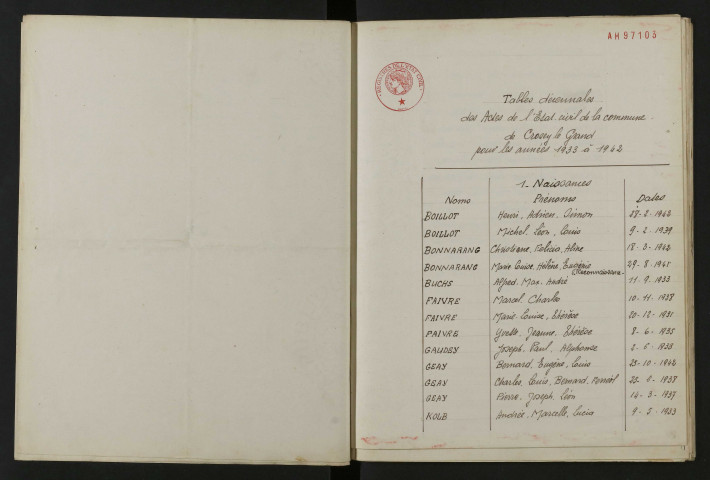 AH97105
REGISTRES DE L'ETAT CIVIL
Tables décennales
des Actes de l'Etat civil de la commune
de Crosey le Grand
pour les années 1933 à 1942
1. Naissances
Noms Prénoms Dates
BOILLOT Henri, Adrien, Simon 28-2-1942
BOILLOT Michel, Léon, Louis 9-2-1939
BONNARANG Christiane, Aline 18-3-1942
BONNARANG Marie Louise, Hélène, Eugénie 29-8-1941
(Reconnaissance)
BUCHS Alfred, Max, André 11-9-1933
FAIVRE Marcel, Charles 10-11-1938
FAIVRE Marie Louise, Thérèse 20-12-1931
FAIVRE Yvette, Jeanne, Thérèse 8-6-1935
GAUDEY Joseph, Paul, Alphonse 1933
GEAY Bernard, Eugène, Louis 23-10-1942
GEAY Charles, Louis, Bernard 1938
GEAY Pierre, Joseph, Léon 14-3-1937
KOLB Andrée, Marcelle, Lucia 1933